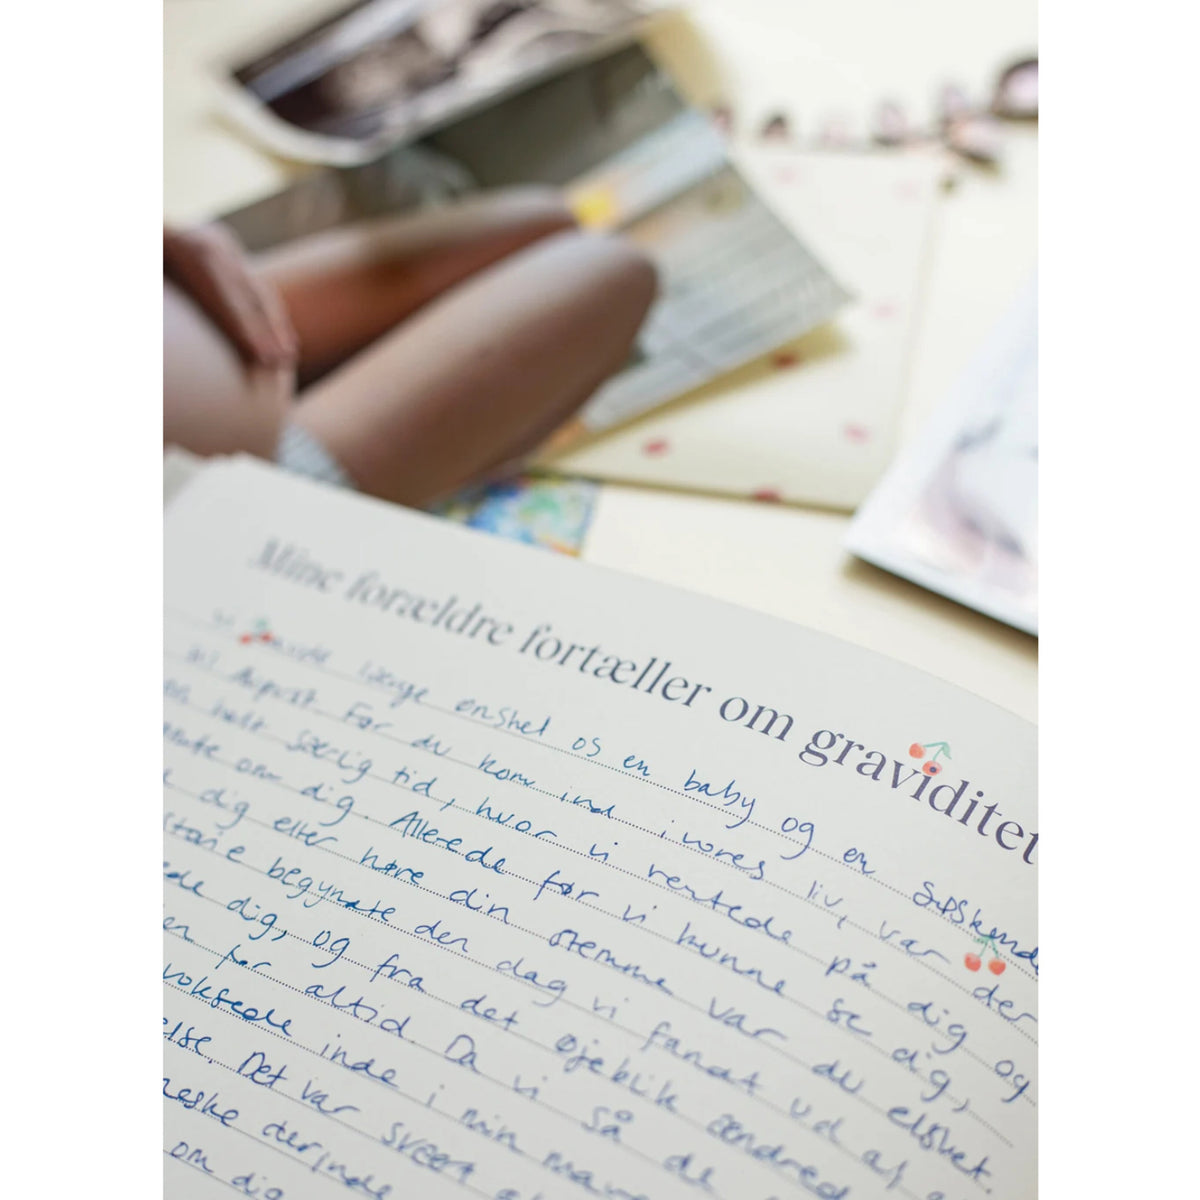 Mine forældre fortæller om graviditet
længe ønsket os en baby og en søskende
til August. Før du kom ind i vores liv, var der
en helt særlig tid, hvor vi ventede på dig og
om dig. Allerede før vi kunne se dig,
dig eller høre din stemme var du elsket.
begyndte den dag vi fandt ud af,
dig, og fra det øjeblik ændred
for altid. Da vi så de
voksede inde i min mave
else. Det var svært
neske derinde
om dig